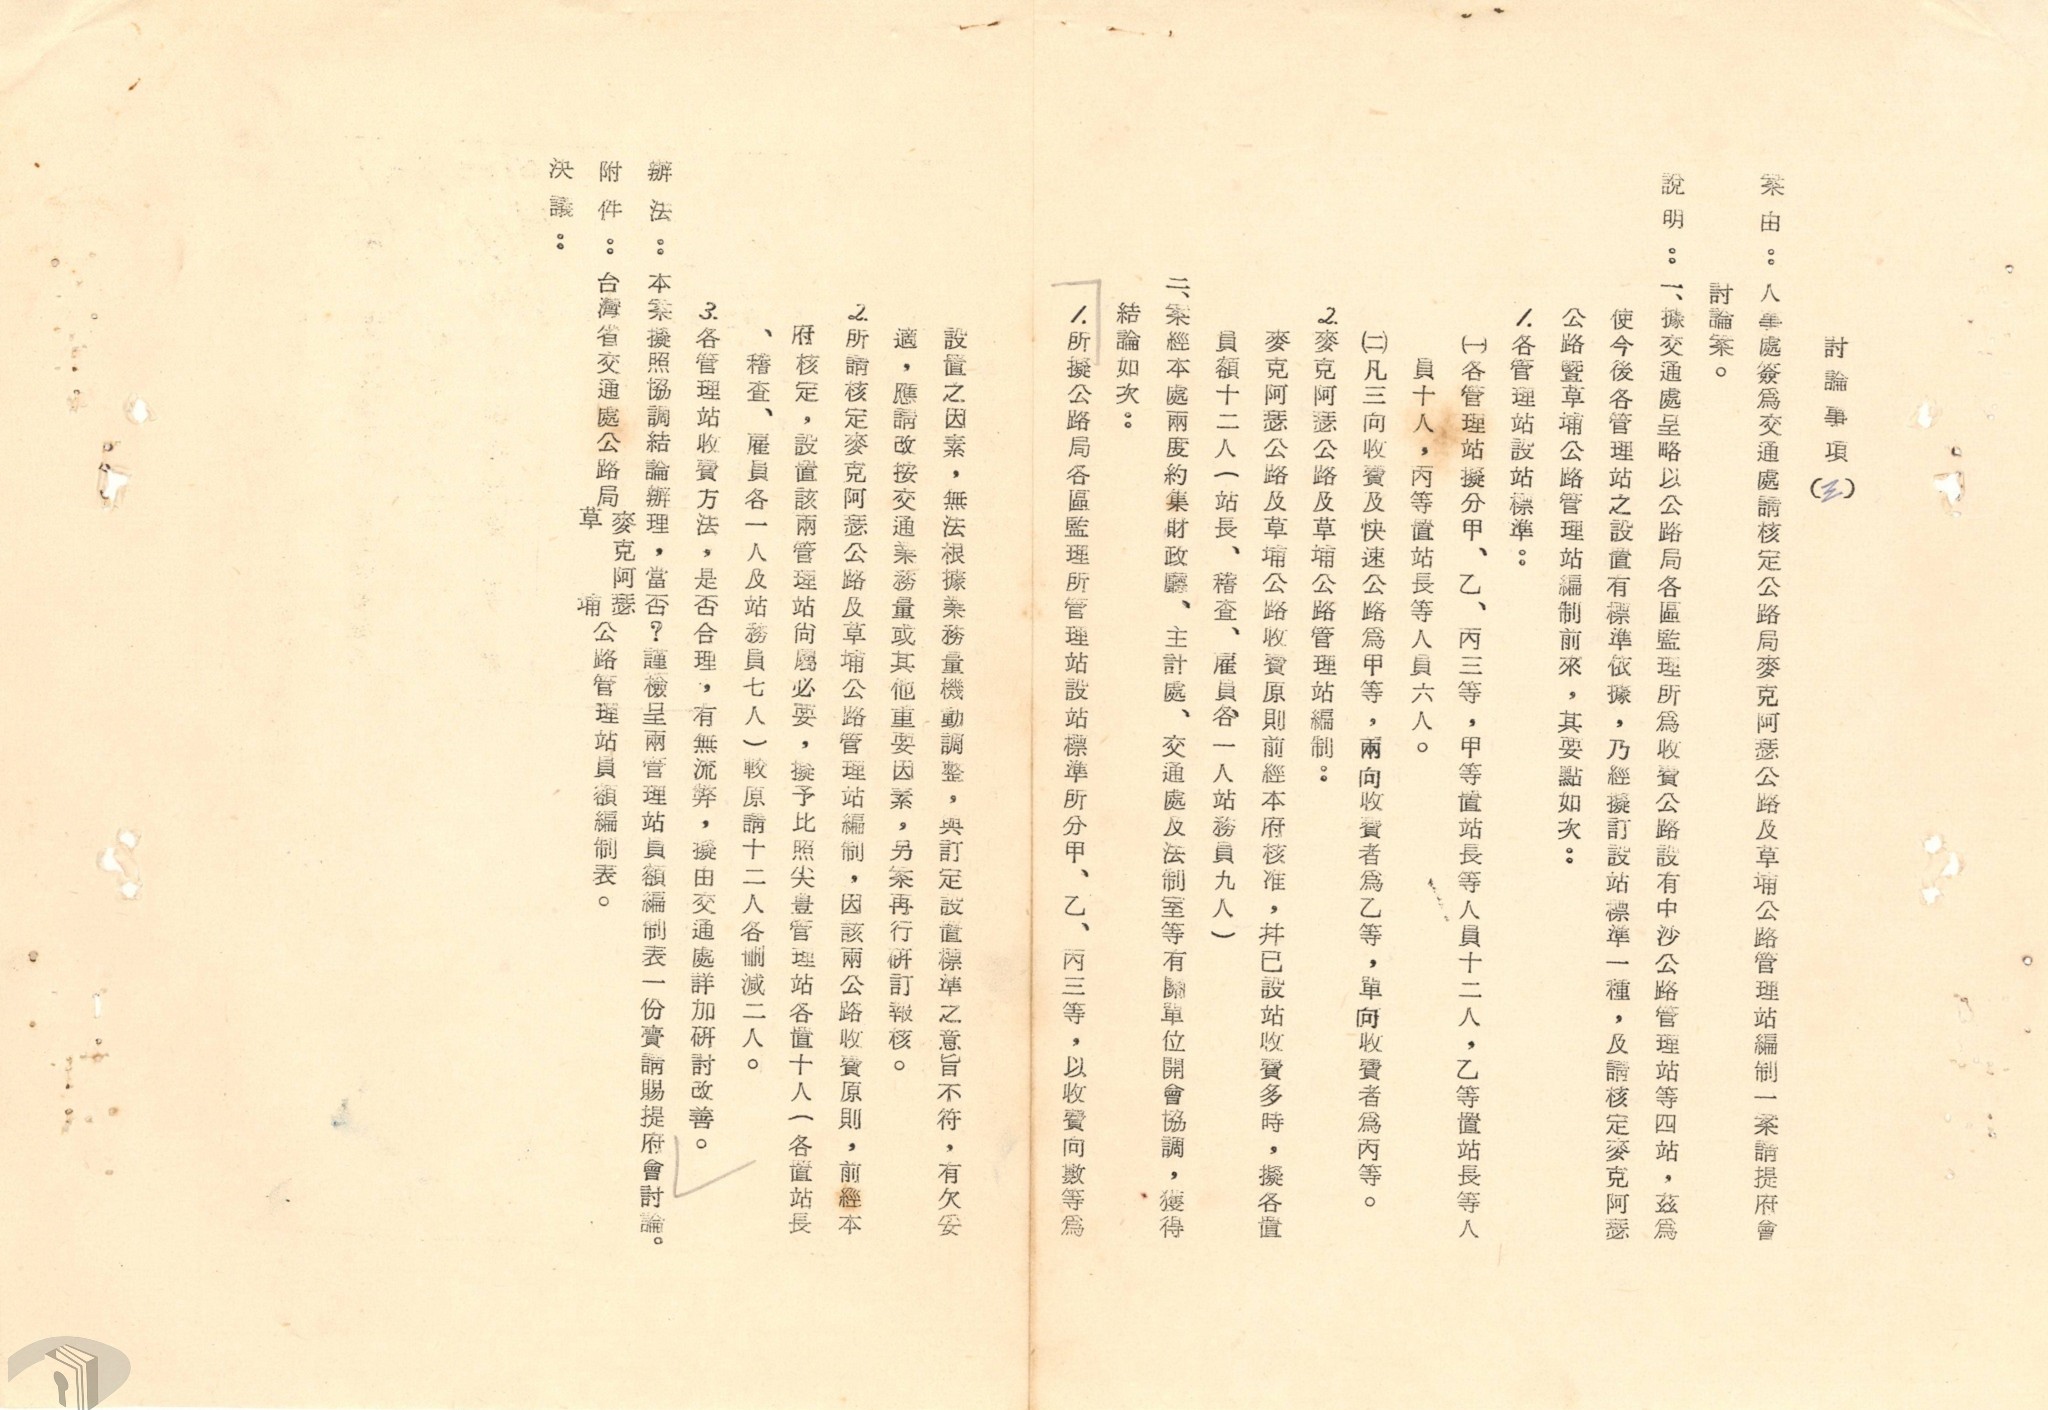 討論事項(三)
案由：人事處簽為交通處請核定公路局麥克阿瑟公路及草埔公路管理站編制一案請提府會
討論案。
說明：一、據交通處呈略以公路局各區監理所為收費公路設有中沙公路管理站等四站，茲為
使今後各管理站之設置有標準依據，乃經擬訂設站標準一種，及請核定麥克阿瑟
公路暨草埔公路管理站編制前來，其要點如次：
1.各管理站設站標準：
㈠各管理站擬分甲、乙、丙三等，甲等置站長等人員十二人，乙等置站長等人
員十人，丙等置站長等人員六人。
㈡凡三向收費及快速公路為甲等，兩向收費者為乙等，單向收費者為丙等。
2.麥克阿瑟公路及草埔公路管理站編制：
麥克阿瑟公路及草埔公路收費原則前經本府核准，并已設站收費多時，擬各置
員額十二人（站長、稽查、雇員各一人站務員九人）
二、案經本處兩度約集財政廳、主計處、交通處及法制室等有關單位開會協調，獲得
結論如次：
1.所擬公路局各區監理所管理站設站標準所分甲、乙、丙三等，以收費向數等為
設置之因素，無法根據業務量機動調整，與訂定設置標準之意旨不符，有欠妥
適，應請改按交通業務量或其他重要因素，另案再行研訂報核。
2.所請核定麥克阿瑟公路及草埔公路管理站編制，因該兩公路收費原則，前經本
府核定，設置該兩管理站尚屬必要，擬予比照尖豐管理站各置十人（各置站長
、稽查、雇員各一人及站務員七人）較原請十二人各刪減二人。
3.各管理站收費方法，是否合理，有無流弊，擬由交通處詳加研討改善。
辦法：本案擬照協調結論辦理，當否？謹檢呈兩管理站員額編制表一份賫請賜提府會討論。
附件：台灣省交通處公路局麥克阿瑟
草埔公路管理站員額編制表。
決議：